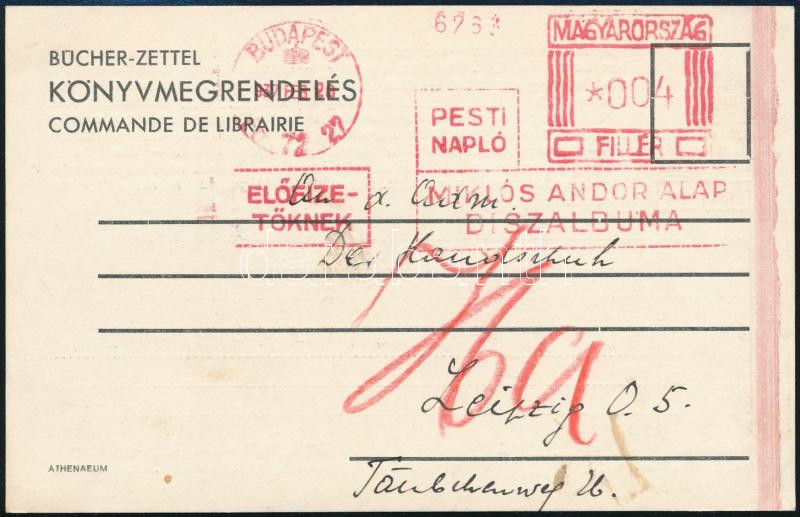 BÜCHER-ZETTEL
KÖNYVMEGRENDELÉS
COMMANDE DE LIBRAIRIE
BUDAPEST
72 27
6763
MAGYARORSZÁG
*004
FILLÉR
PESTI
NAPLÓ
ELŐFIZE-
TŐKNEK
MIKLÓS ANDOR ALAP
DISZALBUMA
An d. Adm.
Der Handschuh
Leipzig O. 5.
Täubchenweg 26.
ATHENAEUM